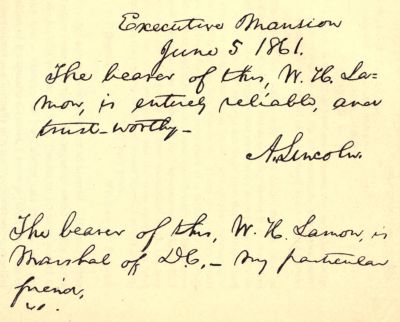 Executive Mansion
June 5 1861.
The bearer of this, W. H. La=
mon, is entirely reliable, and
trust-worthy-
A. Lincoln.
The bearer of this, W. H. Lamon, is
Marshal of D.C, - my particular
friend,